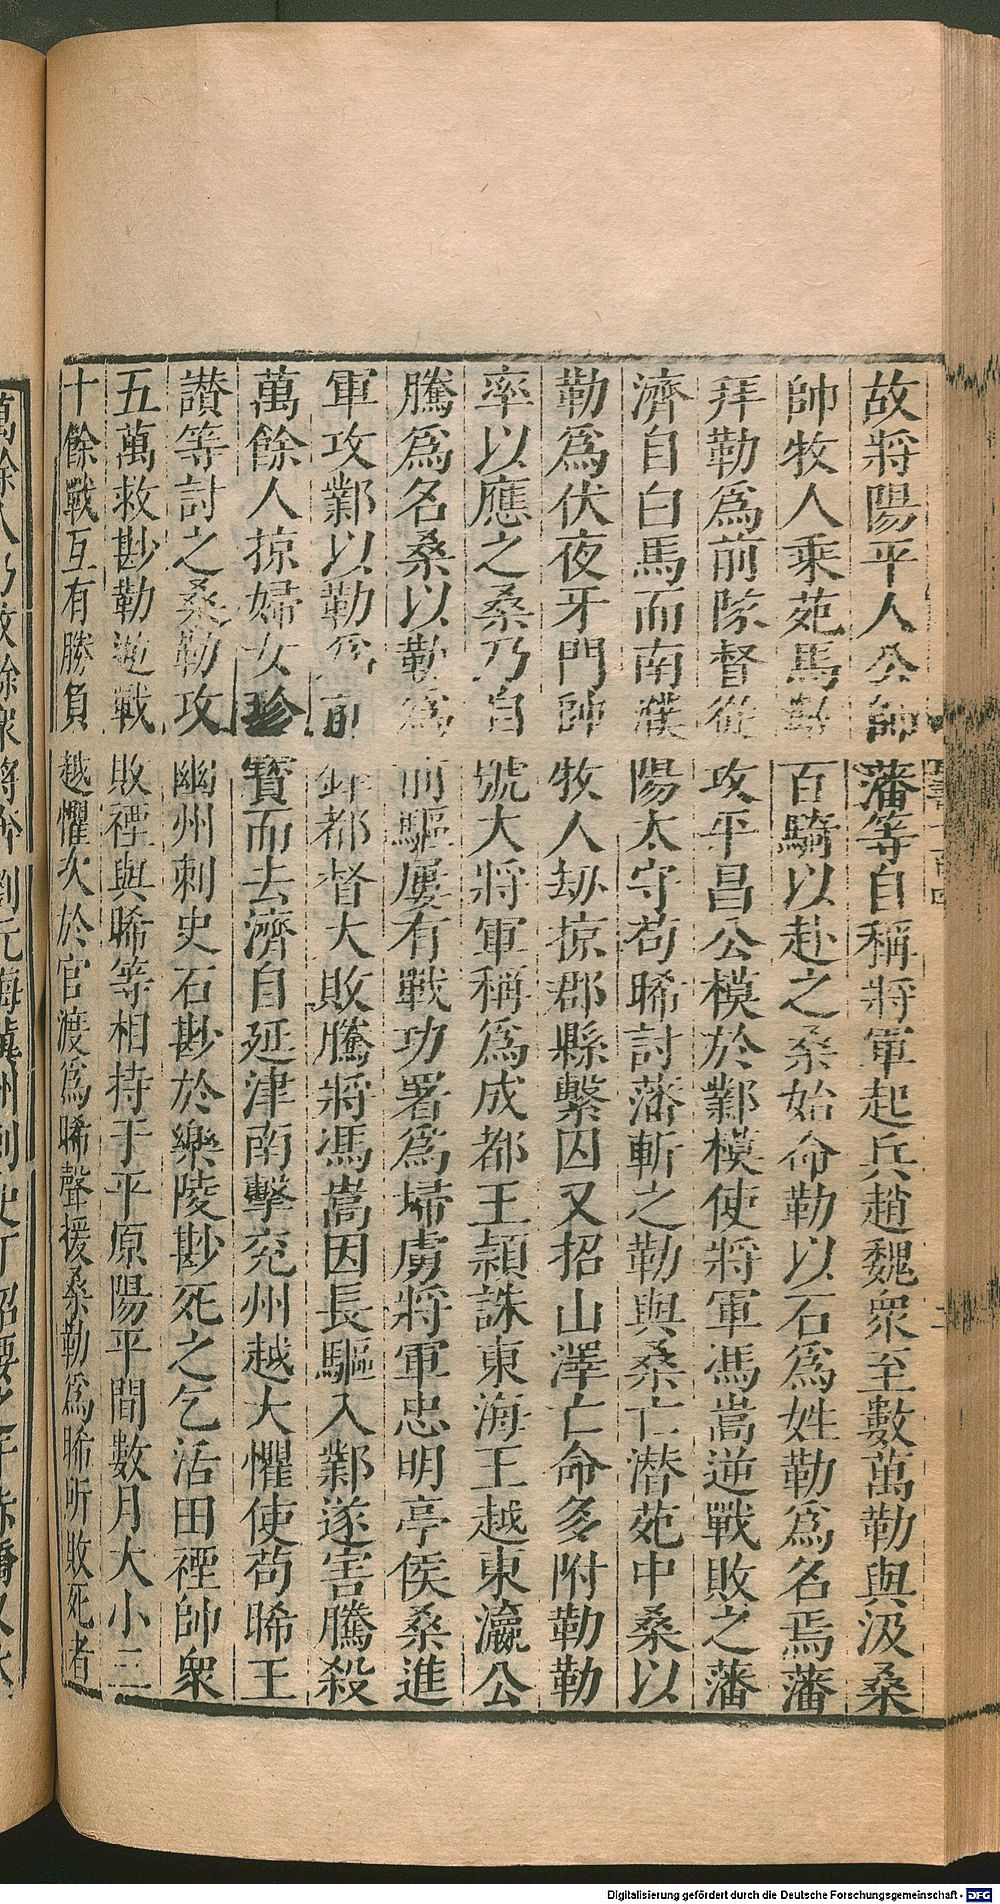 故將陽平人公師藩等自稱將軍起兵趙魏衆至數萬勒與汲桑
帥牧人乘苑馬數百騎以赴之桑始命勒以石爲姓勒爲名焉藩
拜勒爲前隊督從攻平昌公模於鄴模使將軍馮嵩逆戰敗之藩
濟自白馬而南濮陽太守苟晞討藩斬之勒與桑亡潜苑中桑以
勒爲伏夜牙門帥牧人劫掠郡縣繫囚又招山澤亡命多附勒勒
率以應之桑乃自號大將軍稱爲成都王穎誅東海王越東瀛公
騰爲名桑以勒爲前驅屢有戰功署爲埽虜將軍忠明亭侯桑進
軍攻鄴以勒爲前鋒都督大敗騰將馮嵩因長驅入鄴遂害騰殺
萬餘人掠婦女珍寳而去濟自延津南擊兖州越大懼使苟晞王
讃等討之桑勒攻幽州刺史石尠於樂陵尠死之乞活田禋帥衆
五萬救尠勒逆戰敗禋與晞等相持于平原陽平間數月大小三
十餘戰互有勝負越懼次於官渡爲晞聲援桑勒爲晞所敗死者
Digitalisierung gefördert durch die Deutsche Forschungsgemeinschaft - DFG